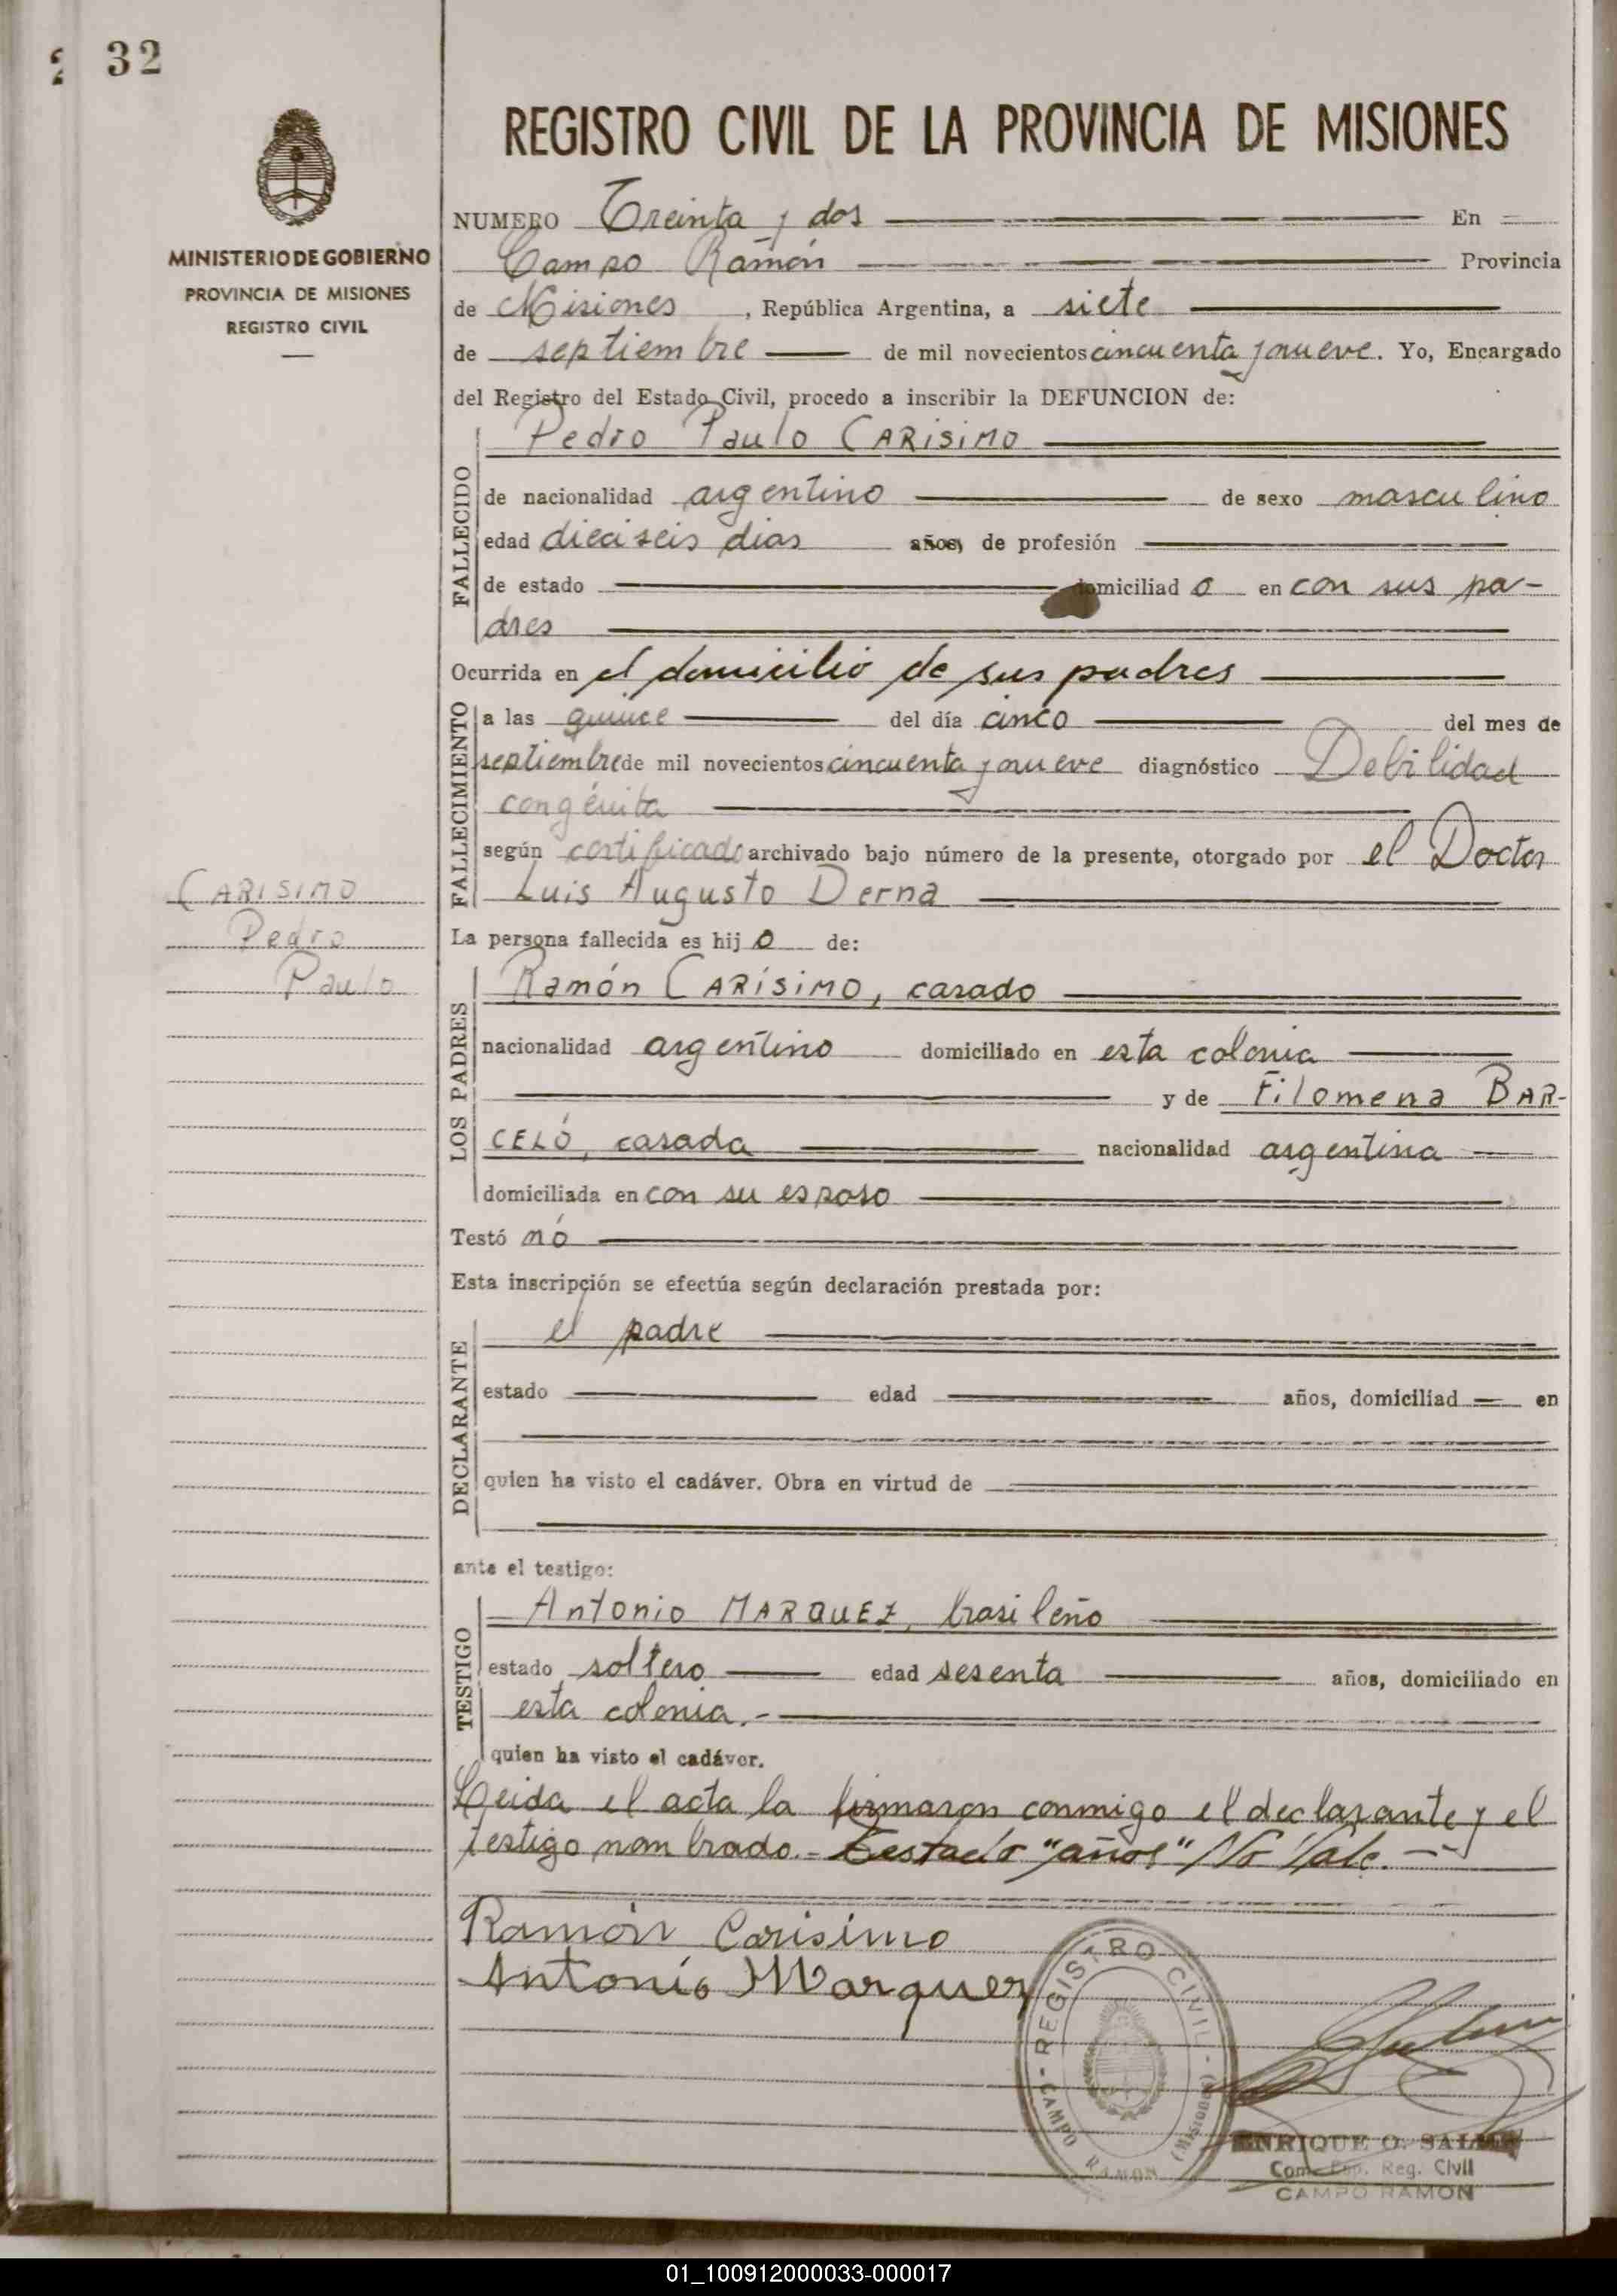 32
MINISTERIO DE GOBIERNO
PROVINCIA DE MISIONES
REGISTRO CIVIL
REGISTRO CIVIL DE LA PROVINCIA DE MISIONES
NUMERO Treinta y dos En
Campo Ramón Provincia
de Misiones, República Argentina, a siete
de septiembre de mil novecientos cincuenta y nueve. Yo, Encargado
del Registro del Estado Civil, procedo a inscribir la DEFUNCION de:
FALLECIDO
Pedro Paulo CARISIMO
de nacionalidad argentino de sexo masculino
edad dieciseis dias años, de profesión
de estado domiciliado en con sus pa-
dres
Ocurrida en el domicilio de sus padres
FALLECIMIENTO
a las quince del día cinco del mes de
septiembre de mil novecientos cincuenta y nueve diagnóstico Debilidad
congénita
según certificado archivado bajo número de la presente, otorgado por el Doctor
Luis Augusto Derna
CARISIMO
Pedro
Paulo
La persona fallecida es hijo de:
LOS PADRES
Ramón CARÍSIMO, casado
nacionalidad argentino domiciliado en esta colonia
y de Filomena BAR-
CELÓ, casada nacionalidad argentina
domiciliada en con su esposo
Testó nó
Esta inscripción se efectúa según declaración prestada por:
DECLARANTE
el padre
estado edad años, domiciliad en
quien ha visto el cadáver. Obra en virtud de
ante el testigo:
TESTIGO
Antonio MARQUEZ, brasileño
estado soltero edad sesenta años, domiciliado en
esta colonia.-
quien ha visto el cadáver.
Leida el acta la firmaron conmigo el declarante y el
testigo nombrado.- Testado "años" No Vale.-
Ramón Carisimo
Antonio Marquez
REGISTRO CIVIL - (MISIONES) CAMPO RAMON
ENRIQUE O.
Reg. Civil
CAMPO RAMON
01_100912000033-000017